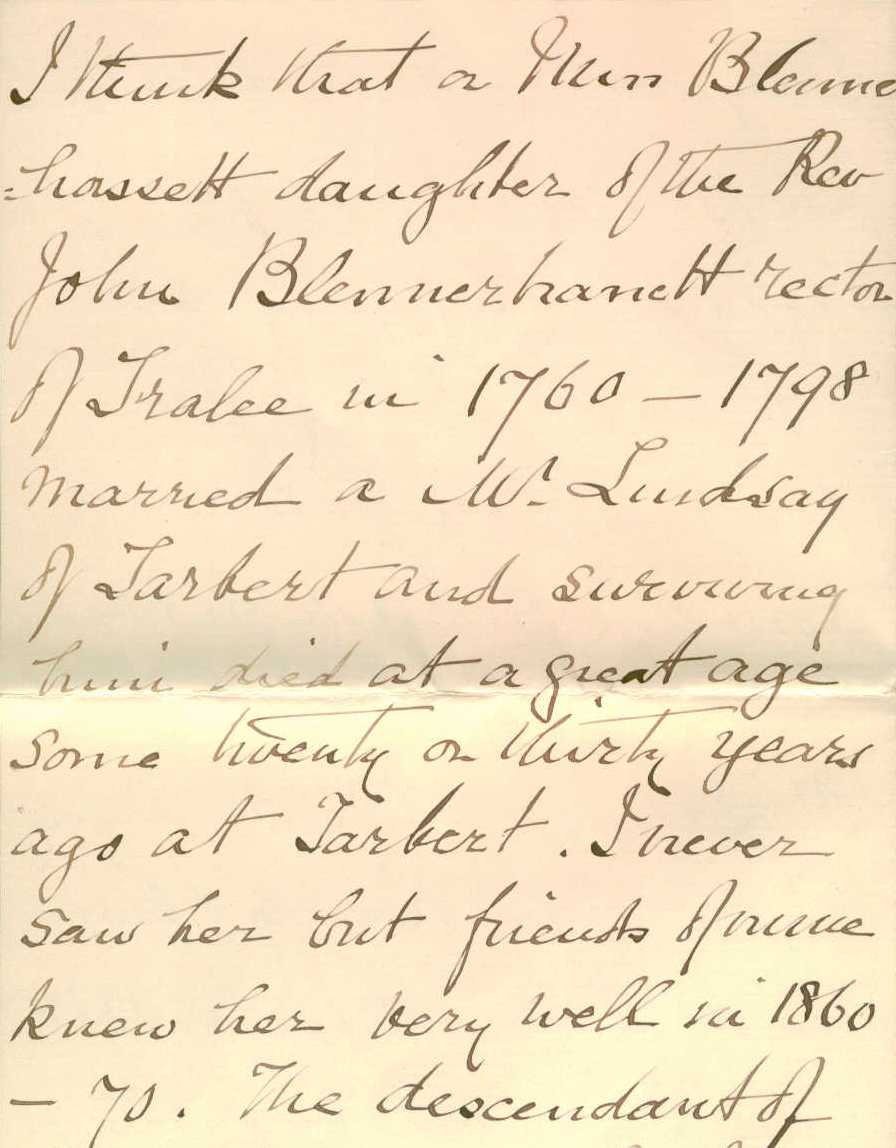 I think that a Miss Blenne
=hassett daughter of the Rev
John Blennerhassett rector
of Tralee in 1760 – 1798
married a Mr. Lindsay
of Tarbert and surviving
him died at a great age
some twenty or thirty years
ago at Tarbert. I never
saw her but friends of mine
knew her very well in 1860
– 70. The descendant of